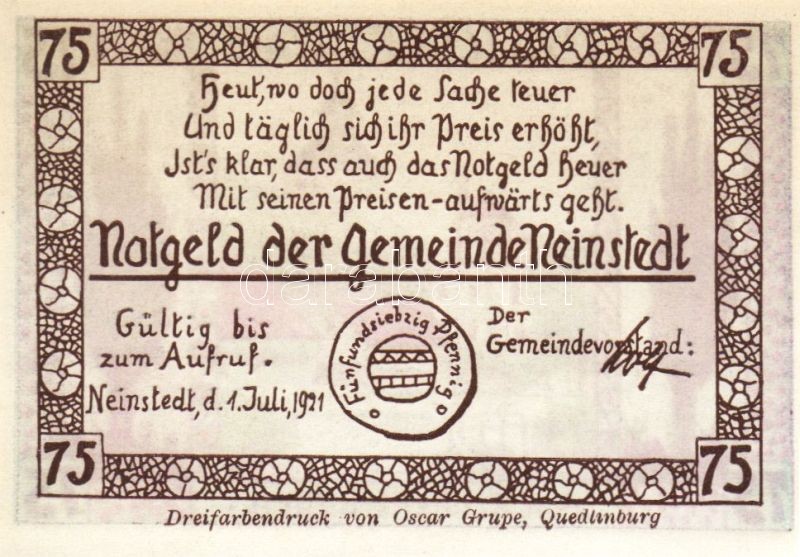 75 75
Heut, wo doch jede Sache teuer
Und täglich sich ihr Preis erhöht,
Ist's klar, dass auch das Notgeld heuer
Mit seinen Preisen-aufwärts geht.
Notgeld der Gemeinde Neinstedt
darabanth
Gültig bis
zum Aufruf.
Neinstedt, d. 1. Juli, 1921
Fünfundsiebzig Pfennig
Der
Gemeindevorstand:
75 75
Dreifarbendruck von Oscar Grupe, Quedlinburg